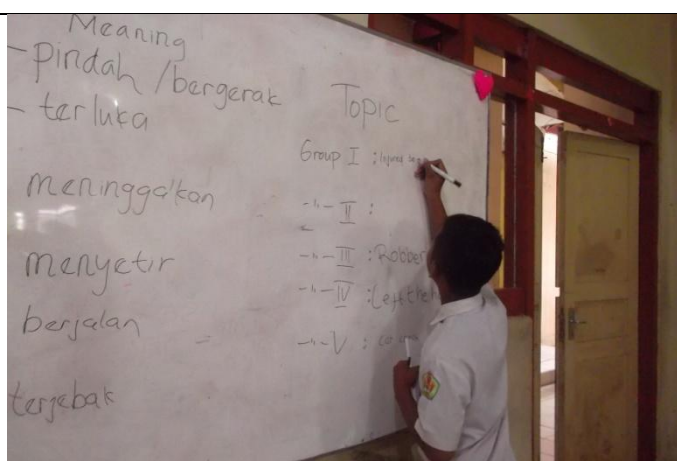 Meaning
- pindah / bergerak
- terluka
meninggalkan
menyetir
berjalan
terjebak
Topic
Group I : Injured
-"- II :
-"- III : Robber
-"- IV : Left the
-"- V : Car